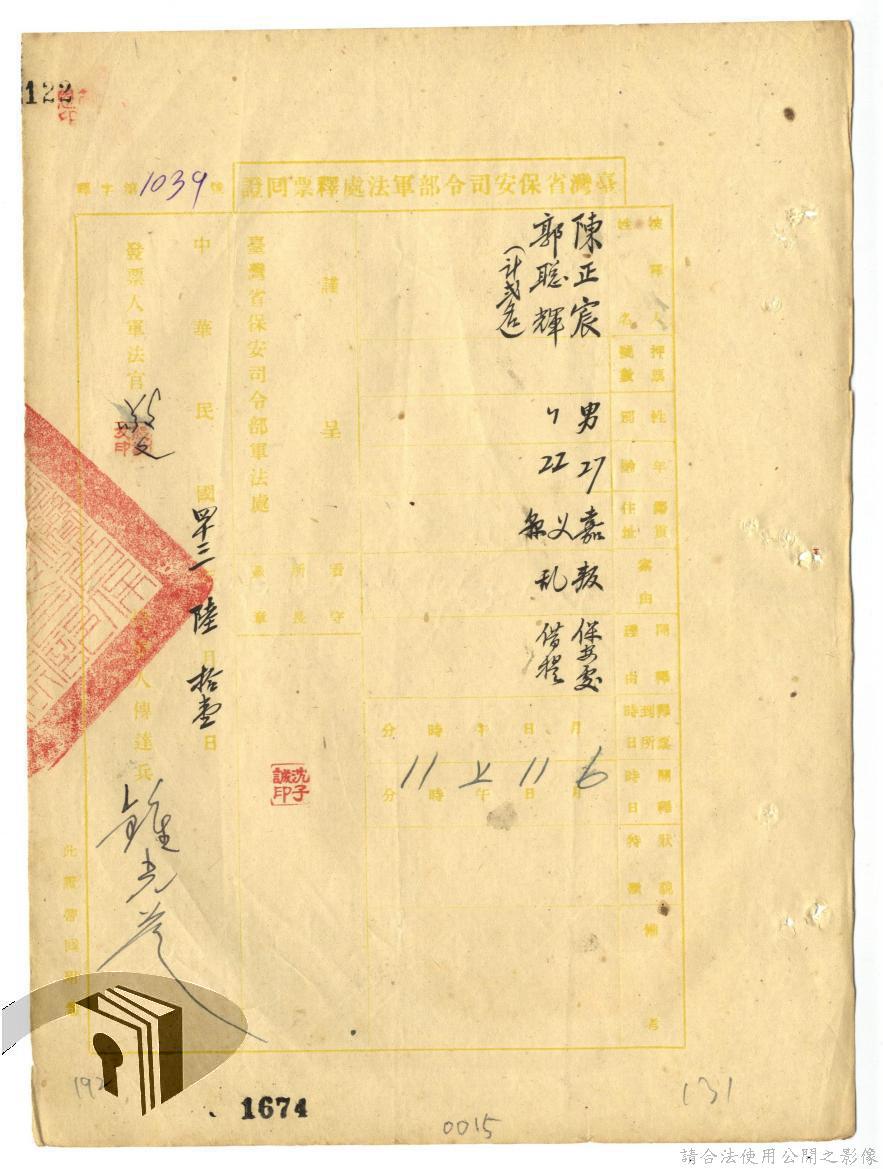 122
臺灣省保安司令部軍法處釋票回證
釋字第1039號
被釋人姓名
陳正宸
郭聰輝
(計貳名)
押票號數
性別
男
〃
年齡
27
22
籍貫住址
嘉义
縣
案由
叛乱
開釋理由
保安處
借提
釋票到所時日
月日午時分
開釋時日
6月11日上午11時分
狀貌特徵
備考
謹呈
臺灣省保安司令部軍法處
看守所所長
蓋章
沈子誠印
中華民國四十三年陸月拾壹日
發票人軍法官
人傳達兵
1674
0015
131
192
請合法使用公開之影像